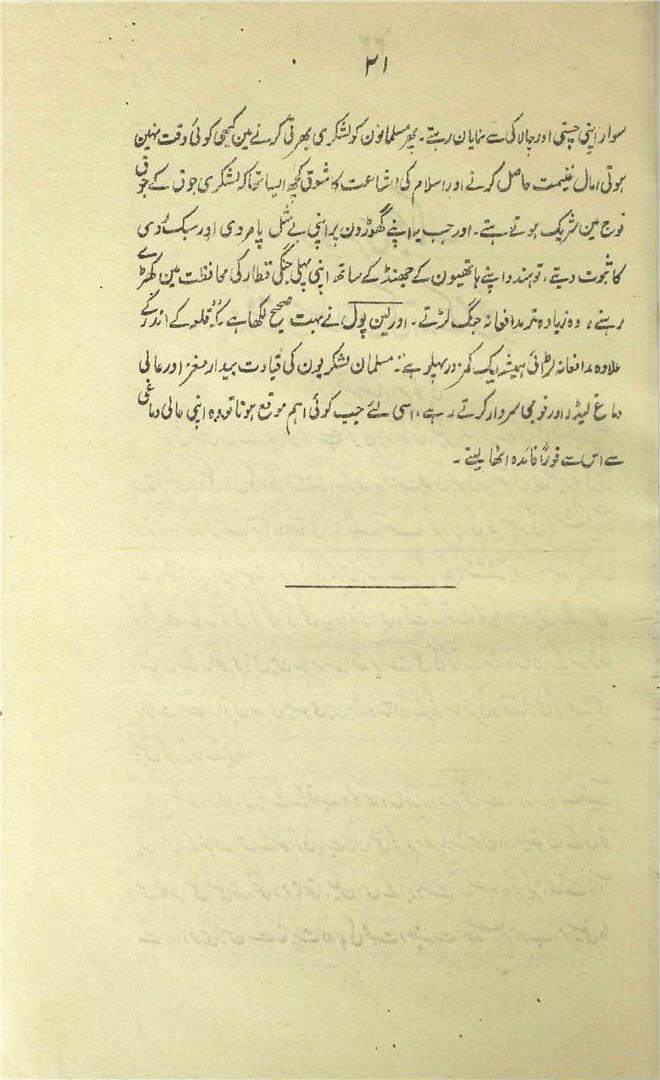 ۳۱
سوار اپنی چستی اور چالاکی سے نمایان رہتے۔ پھر مسلمانون کو لشکری بھرتی کرنے مین کبھی کوئی دقت نہین
ہوتی، مال غنیمت حاصل کرنے اور اسلام کی اشاعت کا شوق کچھ ایسا تھا کہ لشکری جوق کے جوق
فوج مین شریک ہوتے رہتے۔ اور جب یہ اپنے گھوڑون پر اپنی بے مثل پامردی اور سبک روی
کا ثبوت دیتے، تو ہندو اپنے ہاتھیون کے جھنڈ کے ساتھ اپنی پہلی جنگی قطار کی محافظت مین کھڑے
رہتے، وہ زیادہ تر مدافعانہ جنگ لڑتے۔ اور لین پول نے بہت صحیح لکھا ہے کہ "قلعہ کے اندر کے
علاوہ مدافعانہ لڑائی ہمیشہ ایک کمزور پہلو ہے"۔ مسلمان لشکریون کی قیادت بیدار مغز اور عالی
دماغ لیڈر اور فوجی سردار کرتے رہے، اسی لئے جب کوئی اہم موقع ہوتا تو وہ اپنی عالی دماغی
سے اس سے فوراً فائدہ اٹھا لیتے۔